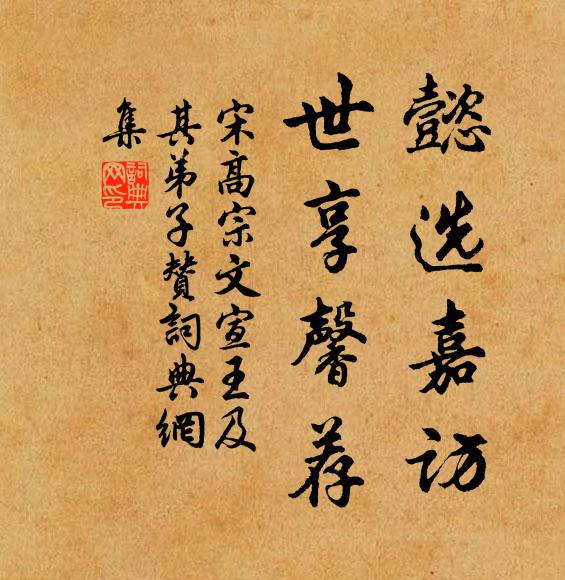 懿选嘉访
世享馨荐
宋高宗文宣王及
其弟子赞詞典網
集
詞典
网印